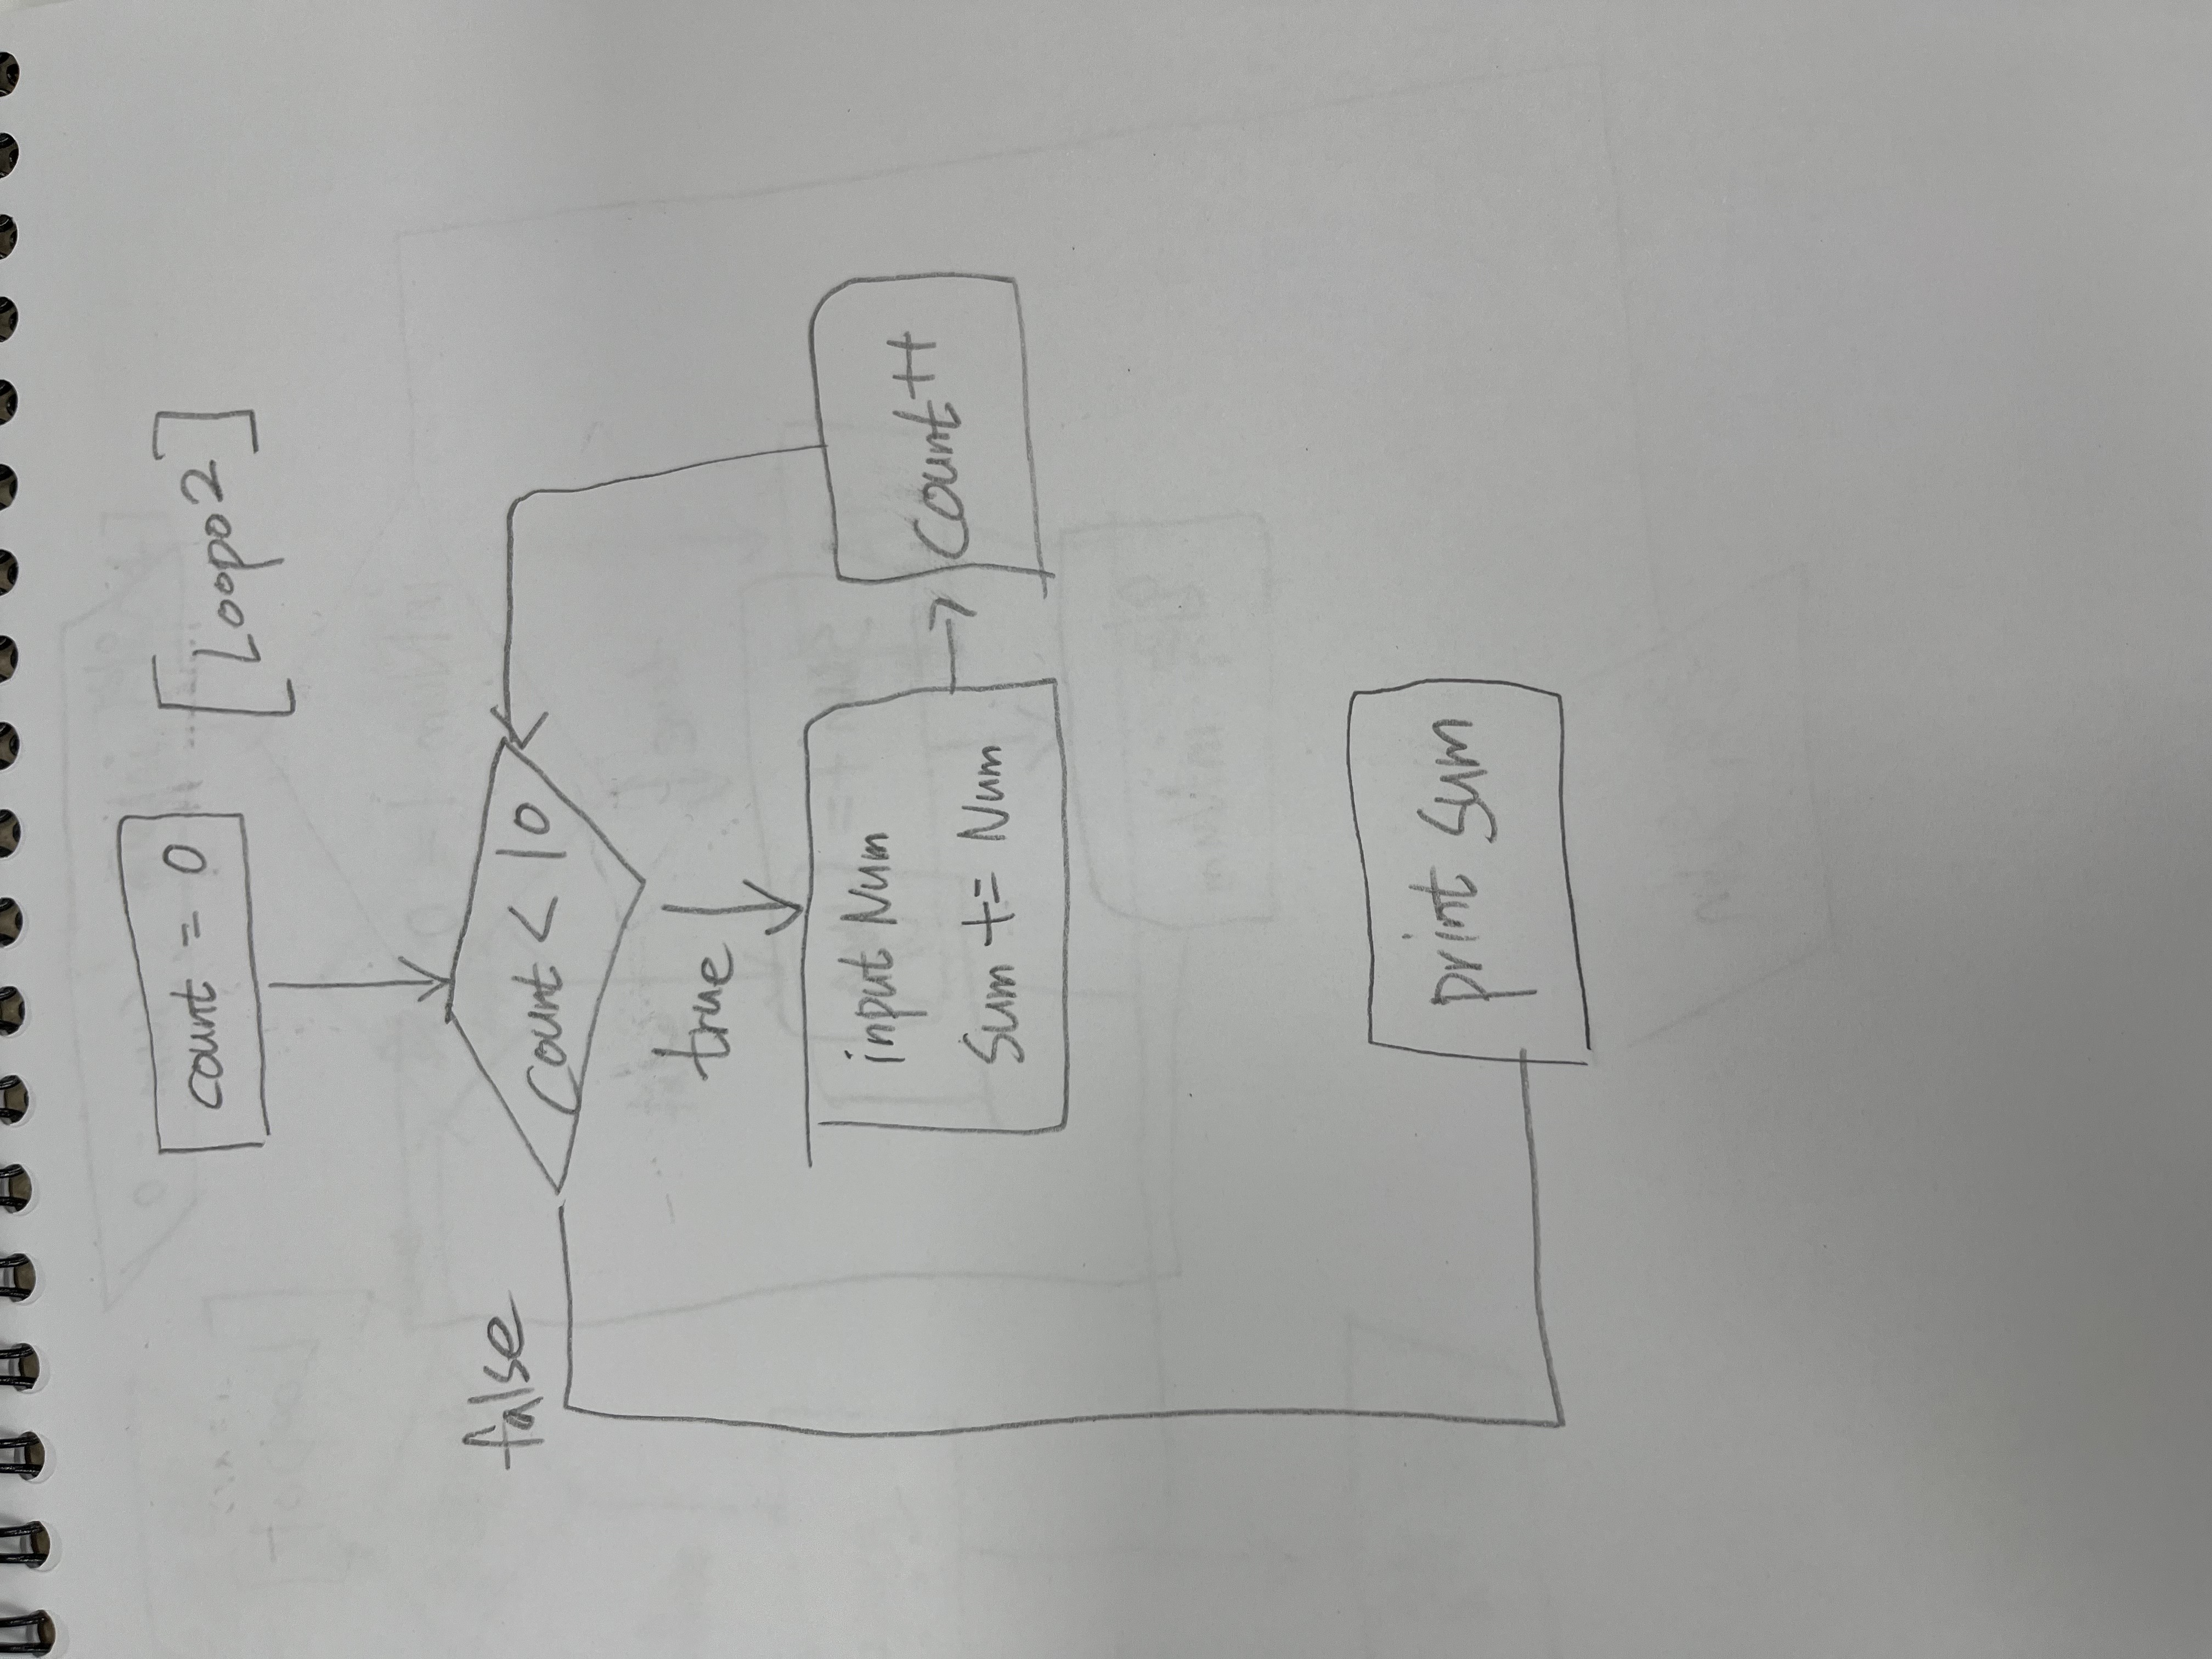 count = 0
[Loop02]
count < 10
false
true
input Num
sum += Num
count++
print sum